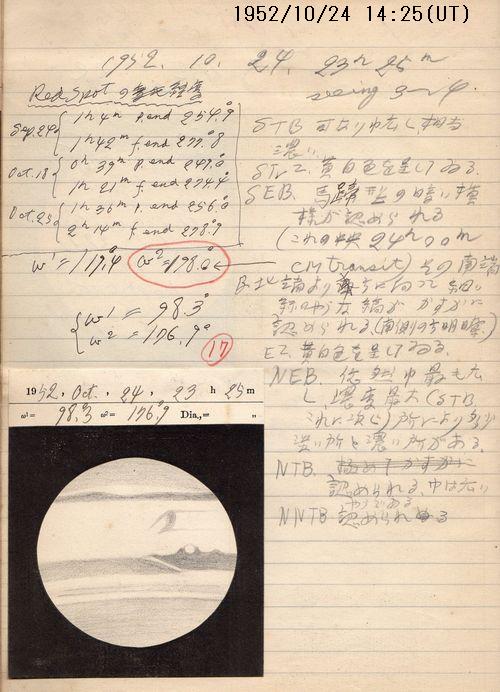 1952/10/24 14:25(UT)
1952. 10. 24. 23h 25m
seeing 3~4.
Red Spot の
Sep.29 1h 4m p. end 254.9°
1h 42m f. end 277.8
Oct.18 0h 39m p. end 249.0
1h 21m f. end 274.4
Oct.23 1h 36m p. end 256.0
2h 14m f. end 278.9
STB 可なり巾広く相当
濃い.
STrZ. 黄白色を呈してゐる.
SEB. 馬蹄形の暗い模
様が認められる
(これの中央 24h00m
CM transit) その南端
ω1=119.4 ω2=198.0°
ω1 = 98.3°
ω2 = 176.9°
17
認められる (南側の方明瞭)
EZ. 黄白色を呈してゐる.
NEB. 依然巾最も広
く, 濃度最大 (STB
これに次ぐ) 所により多少
淡い所と濃い所がある.
NTB. 極めてかすかに
認められる. 巾は広い
やうである
NNTB 認められ
1952, Oct., 24, 23 h 25 m
ω1= 98.3 ω2= 176.9 Dia.,= "